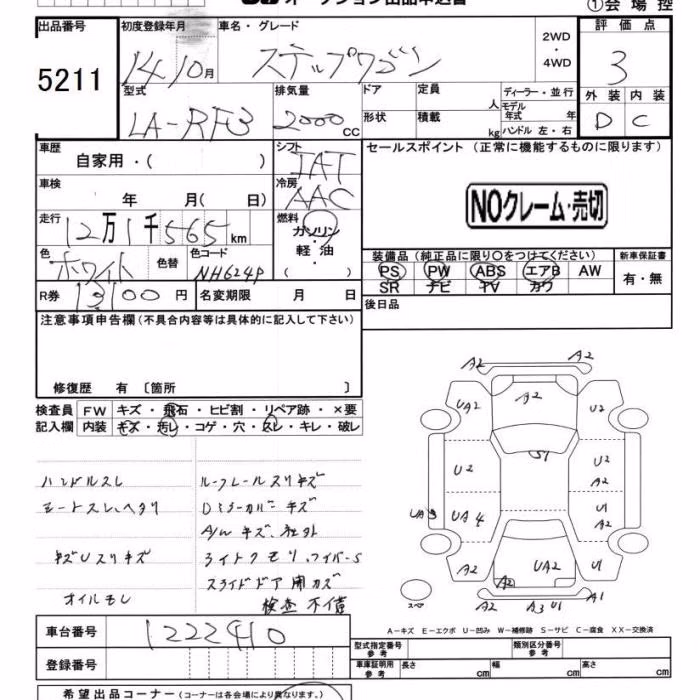 オークション出品申込書
①会場控
出品番号
5211
初度登録年月
14 10月
車名・グレード
ステップワゴン
2WD
・
4WD
評価点
3
外装 内装
D C
型式
LA-RF3
排気量
2000 cc
ドア
形状
定員 人
積載 kg
ディーラー・並行
モデル年式 年
ハンドル 左・右
車歴
自家用・( )
シフト
IAT
セールスポイント (正常に機能するものに限ります)
NOクレーム・売切
車検 年 月( 日)
冷房
AAC
走行
12万1千565km
燃料
ガソリン
・
軽油
( )
色
ホワイト
色替
色コード
NH624P
装備品 (純正品に限り〇をつけてください)
新車保証書
PS PW ABS エアB AW
SR ナビ TV カワ
有・無
R券 13100円
名変期限 月 日
後日品
注意事項申告欄(不具合内容等は具体的に記入して下さい)
修復歴 有 〔箇所 〕
検査員記入欄
FW キズ・飛石・ヒビ割・リペア跡・×要
内装 キズ・汚レ・コゲ・穴・スレ・キレ・破レ
ハンドルスレ ルーフレールスリキズ
シートスレ、ヘタリ Dミラーカバーキズ
A/W キズ、社外
キズUスリキズ ライトクモリ、ワイパーS
スライドドア用カズ
オイルモレ 検査不備
A2 A2
A2
UA2 U2
S1
U2 U2
A2
UA3 UA4 U1
A2
A2 A2 UA2 U1
A2 A3 U1 A1
スペ
A-キズ E-エクボ U-凹み W-補修跡 S-サビ C-腐食 XX-交換済
車台番号 1222410
登録番号
型式指定番号 参考
類別区分番号 参考
車庫証明用 参考 長さ cm 幅 cm 高さ cm
希望出品コーナー (コーナーは各会場により異なります)